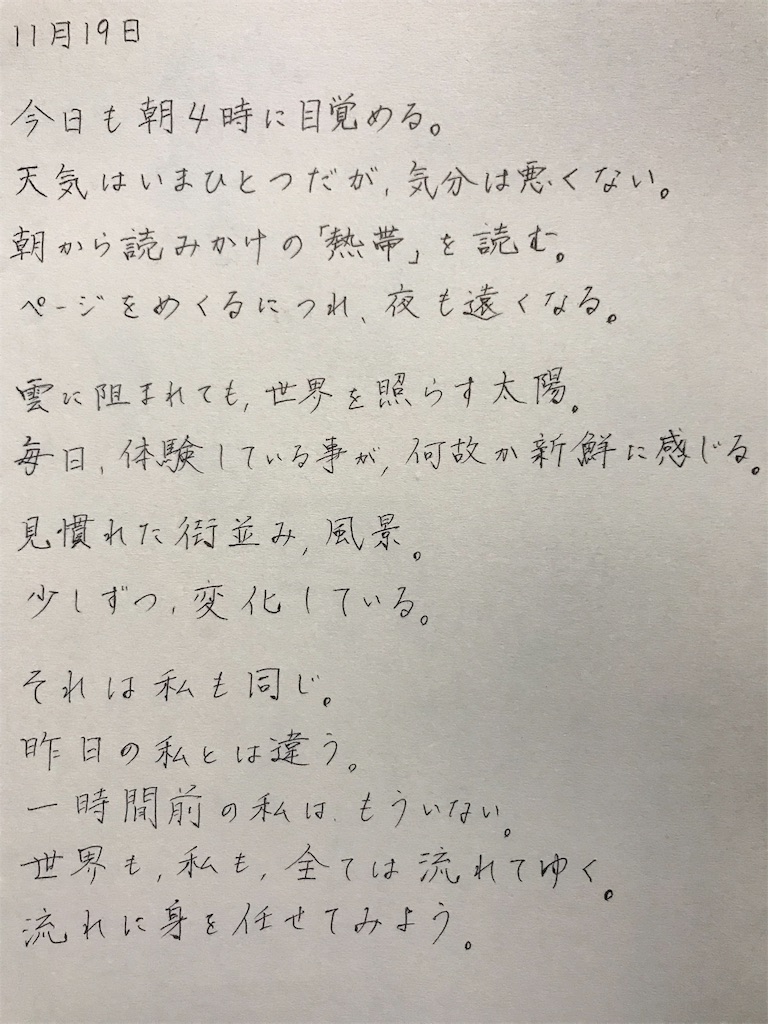 11月19日
今日も朝4時に目覚める。
天気はいまひとつだが、気分は悪くない。
朝から読みかけの「熱帯」を読む。
ページをめくるにつれ、夜も遠くなる。
雲に阻まれても、世界を照らす太陽。
毎日、体験している事が、何故か新鮮に感じる。
見慣れた街並み、風景。
少しずつ、変化している。
それは私も同じ。
昨日の私とは違う。
一時間前の私は、もういない。
世界も、私も、全ては流れてゆく。
流れに身を任せてみよう。